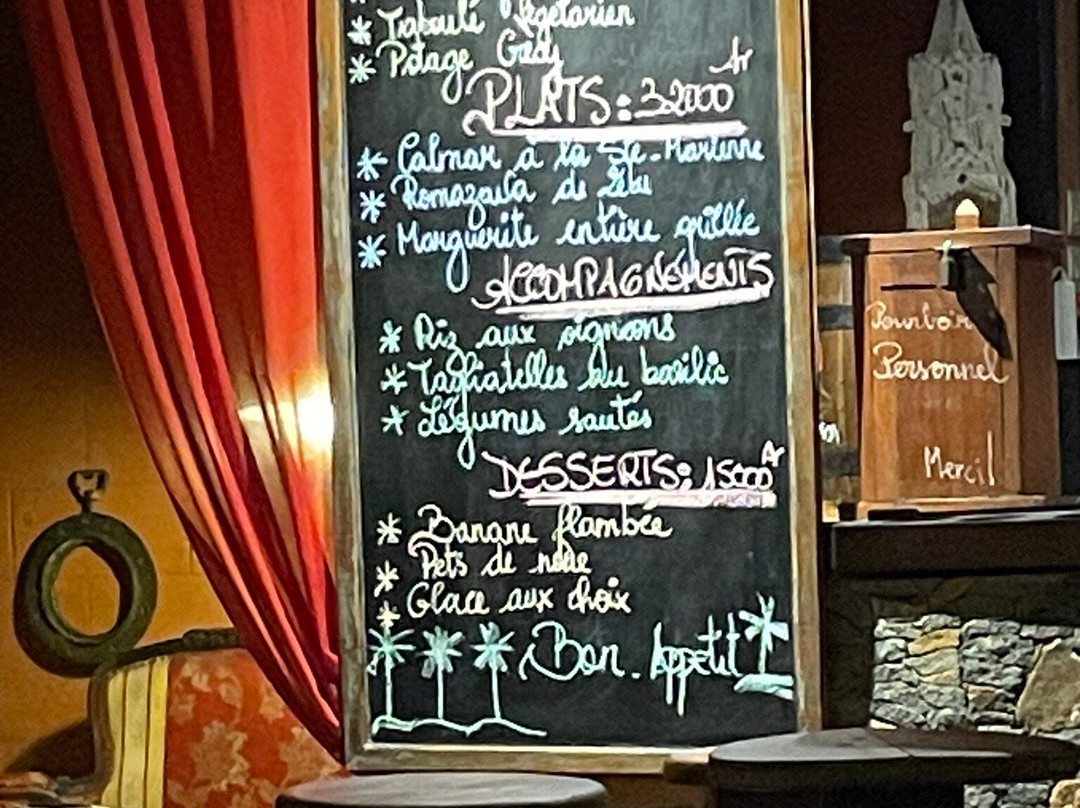 * Taboulé Végétarien
* Potage Crécy
PLATS: 32000 Ar
* Calmar à la Ste-Marienne
* Romazava de Zébu
* Marguerite entière grillée
ACCOMPAGNEMENTS
* Riz aux oignons
* Tagliatelles au basilic
* Légumes sautés
DESSERTS: 15000 Ar
* Banane flambée
* Pets de none
* Glace aux choix
Bon Appetit
Pourboire
Personnel
Merci!